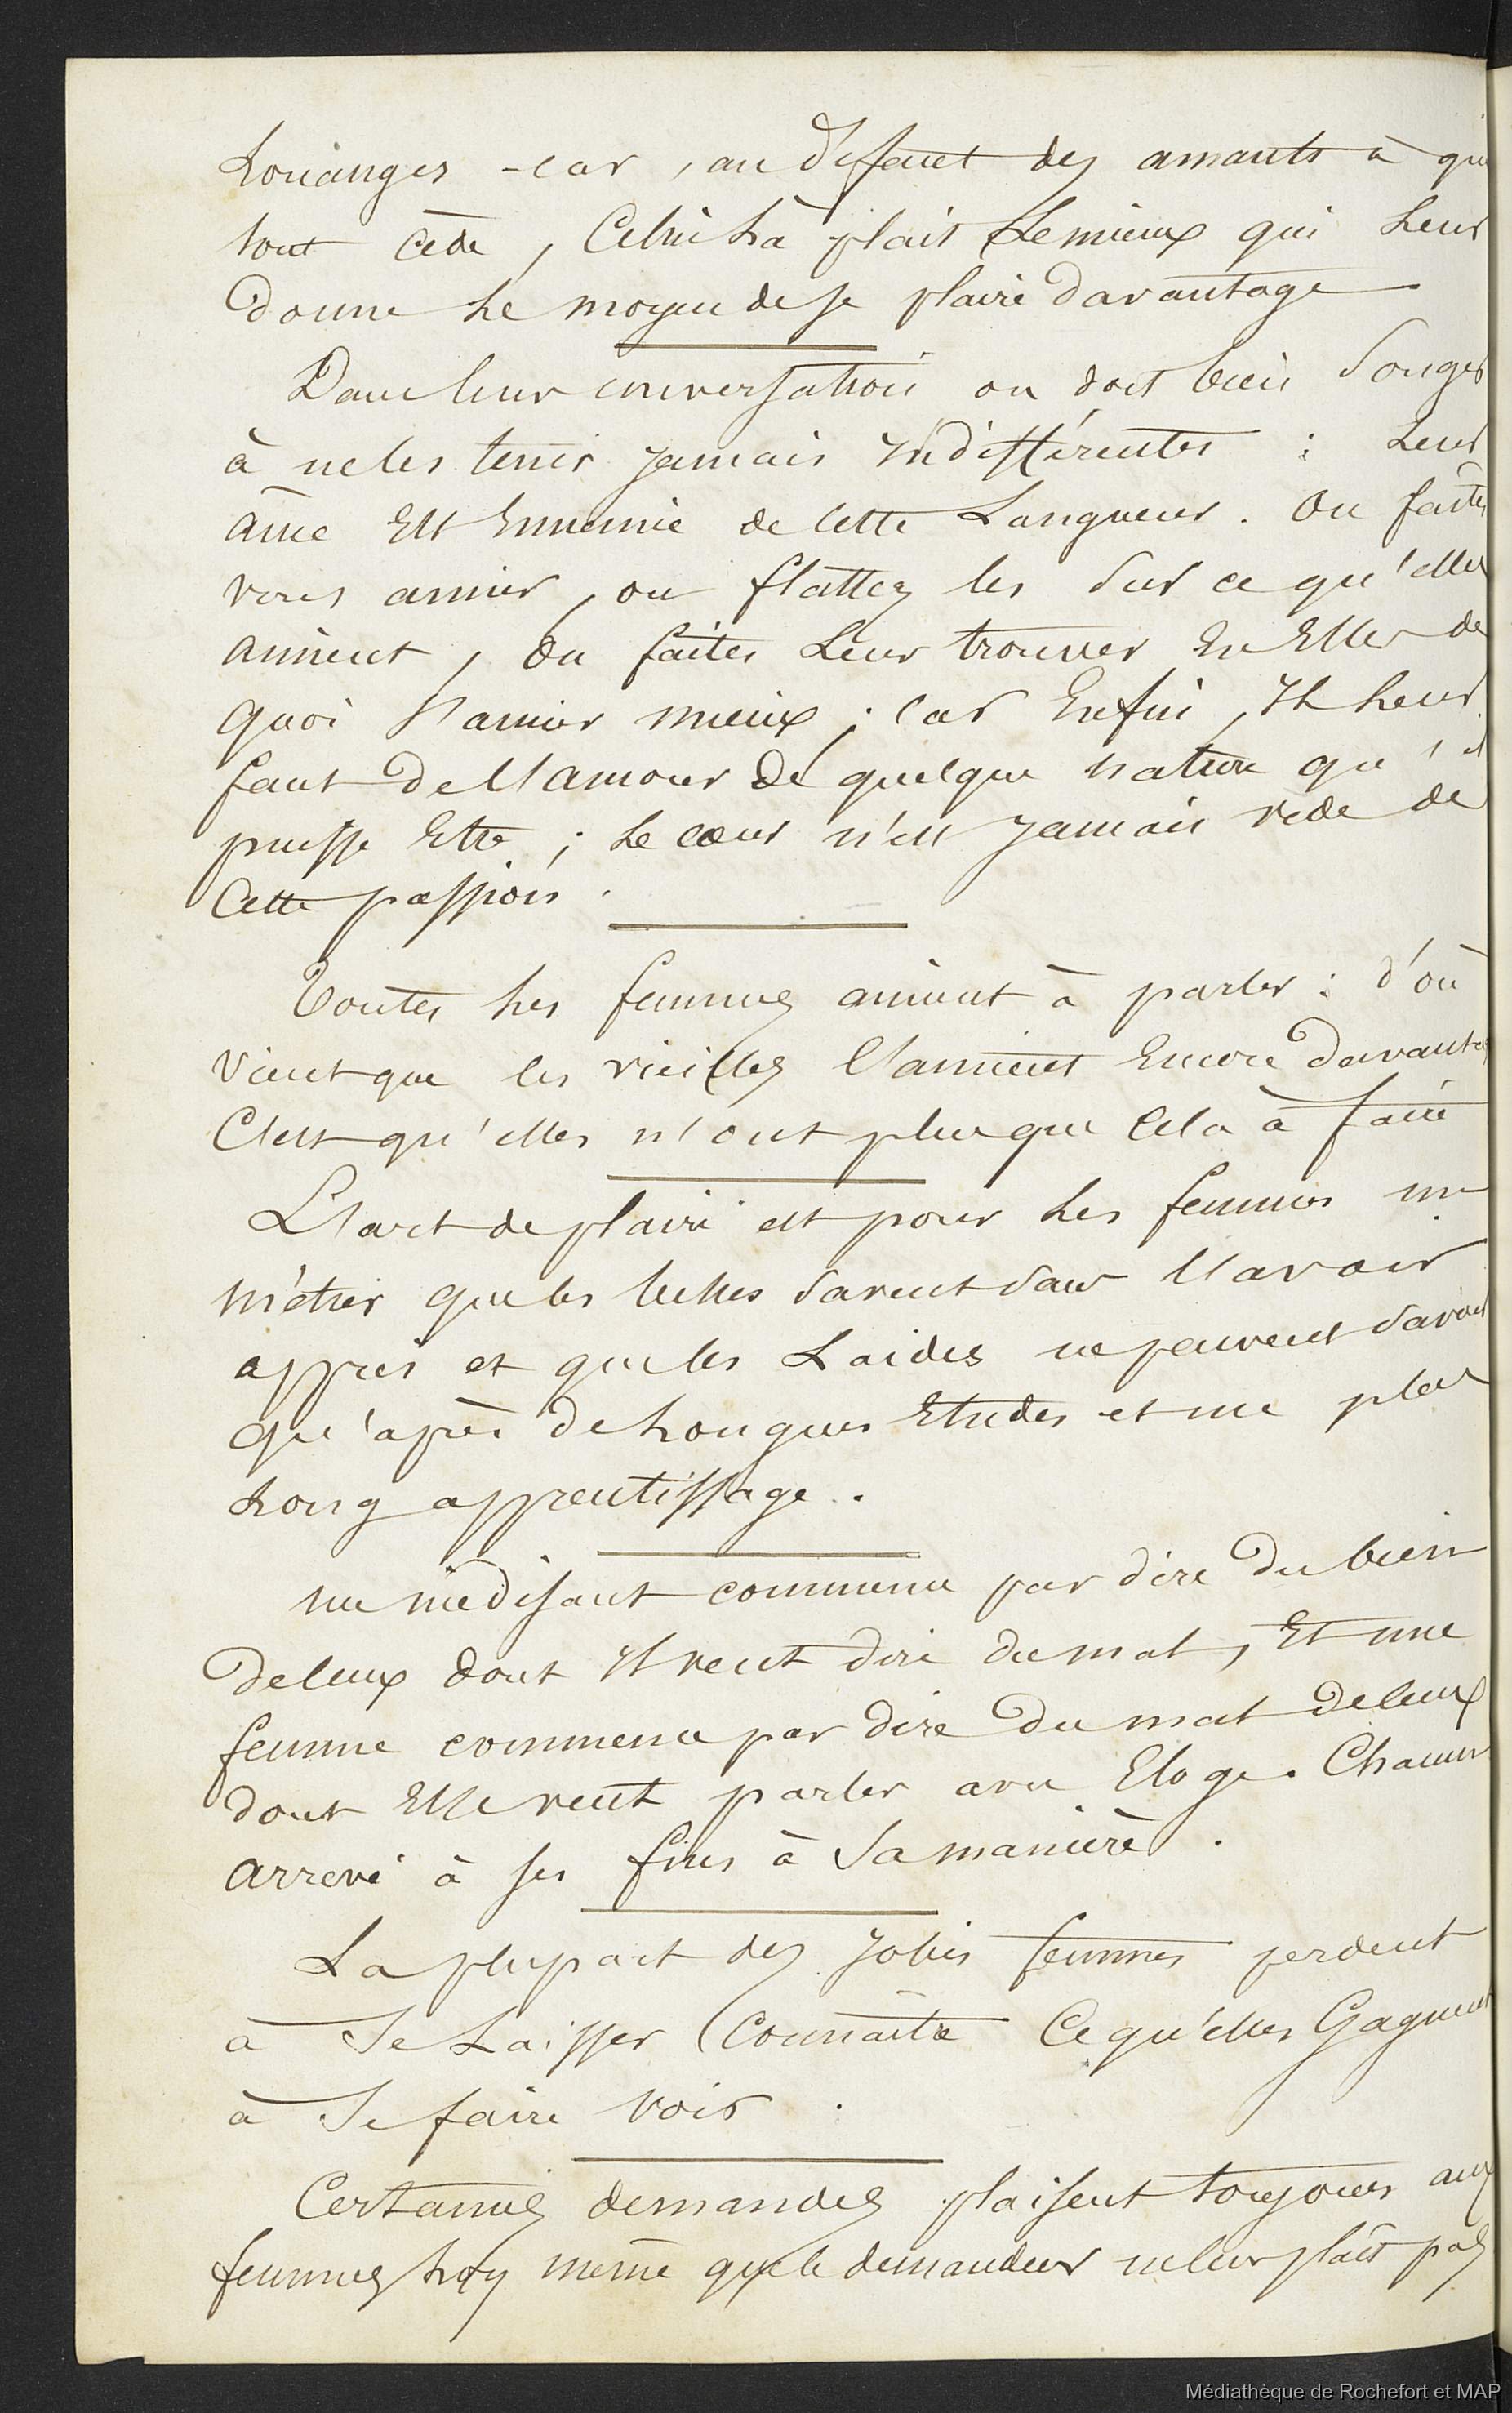 Louanges - car, au défaut des amants à qui
tout cède, Celui là plait Le mieux qui Leur
donne Le moyen de se plaire davantage
Dans leur conversation on doit bien Songer
à ne les tenir jamais Indifférentes : Leur
âme Est Ennemie de cette Langueur. Ou faites
vous aimer, ou flattez les Sur ce qu'elles
aiment, Ou faites Leur trouver En Elles de
quoi s'aimer mieux ; Car Enfin, Il Leur
faut de l'amour de quelque nature qu'il
puisse Etre ; Le cœur n'est jamais vide de
Cette passion.
Toutes Les femmes aiment à parler : d'où
vient que les vieilles l'aiment Encore davantage
C'est qu'elles n'ont plus que Cela à faire
L'art de plaire est pour Les femmes un
métier que les belles Savent Sans l'avoir
appris et que les Laides ne peuvent Savoir
qu'après de Longues Etudes et un plus
Long apprentissage.
un médisant commence par dire du bien
de ceux dont Il veut dire du mal, Et une
femme commence par dire du mal de ceux
dont Elle veut parler avec Eloge. Chacun
arrive à ses fins à Sa manière.
La plupart des Jolies femmes perdent
à Se Laisser Connaître Ce qu'elles Gagnent
à Se faire voir.
Certaines demandes plaisent toujours aux
femmes lors même que le demandeur ne leur plaît pas
Médiathèque de Rochefort et MAP